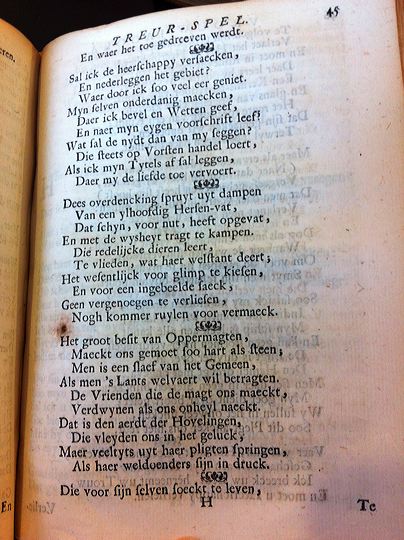 TREUR-SPEL. 45
En waer het toe gedreeven werdt.
Sal ick de heerschappy versaecken,
En nederleggen het gebiet?
Waer door ick soo veel eer geniet.
Myn selven onderdanig maecken,
Daer ick bevel en Wetten geef,
En naer myn eygen voorschrift leef?
Wat sal de nydt dan van my seggen?
Die steets op Vorsten handel loert,
Als ick myn Tytels af sal leggen,
Daer my de liefde toe vervoert.
Dees overdencking spruyt uyt dampen
Van een ylhoofdig Hersen-vat,
Dat schyn, voor nut, heeft opgevat,
En met de wysheyt tragt te kampen.
Die redelijcke dieren leert,
Te vlieden, wat haer welstant deert;
Het wesentlijck voor glimp te kiesen,
En voor een ingebeelde saeck,
Geen vergenoegen te verliesen,
Nogh kommer ruylen voor vermaeck.
Het groot besit van Oppermagten,
Maeckt ons gemoet soo hart als steen,
Men is een slaef van het Gemeen,
Als men 's Lants welvaert wil betragten.
De Vrienden die de magt ons maeckt,
Verdwynen als ons onheyl naeckt.
Dat is den aerdt der Hovelingen,
Die vleyden ons in het geluck,
Maer veeltyts uyt haer pligten springen,
Als haer weldoenders sijn in druck.
Die voor sijn selven soeckt te leven,
H
Te
En